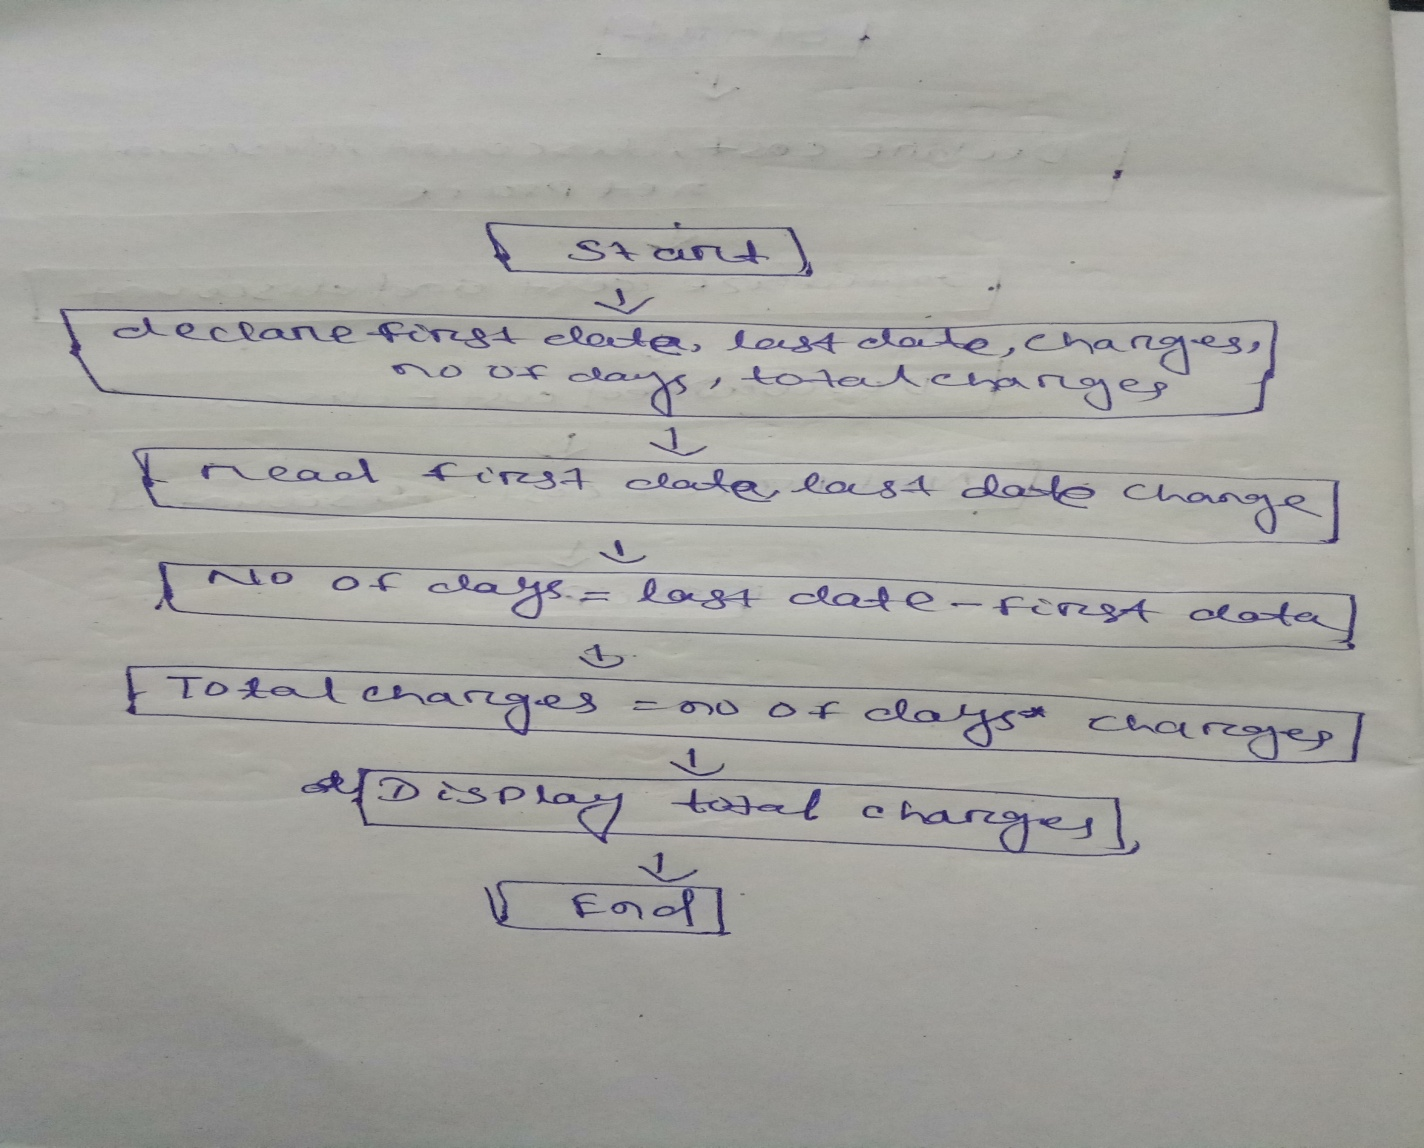 Start
declare first data, last date, charges,
no of days, total charges
read first data, last date change
No of days = last date - first data
Total charges = no of days * charges
Display total charges
End